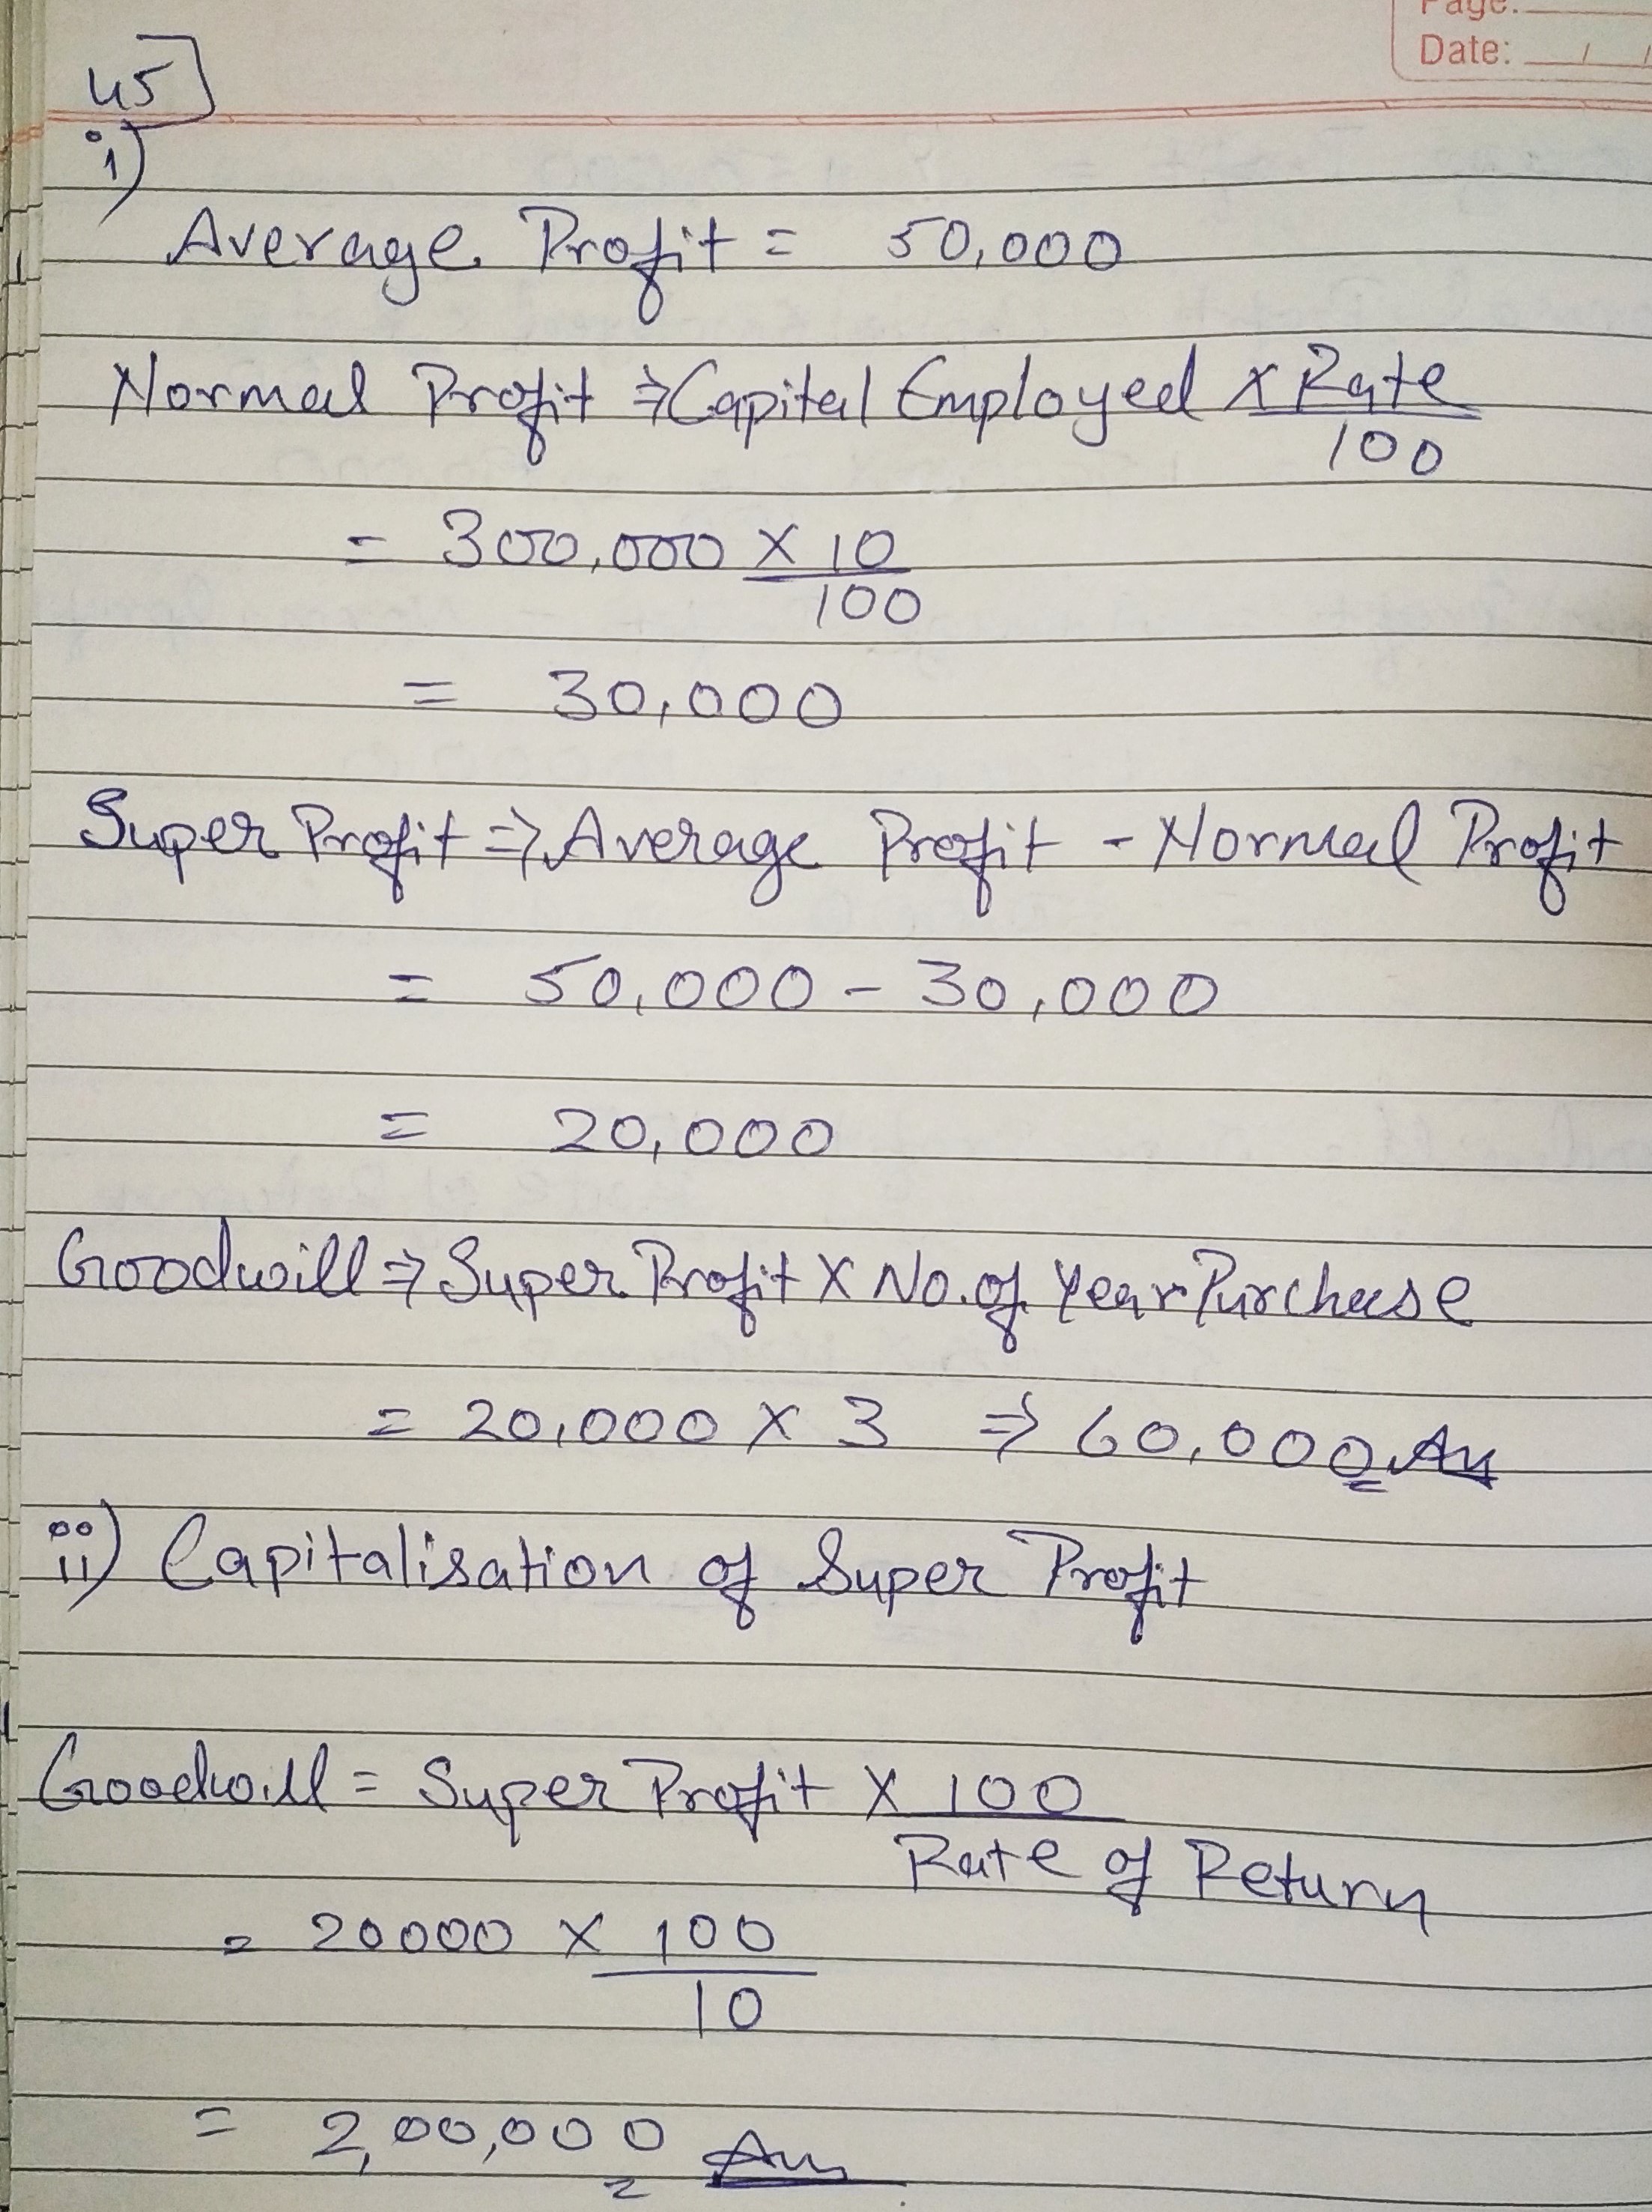 Page:
Date: / /
45]
i)
Average Profit = 50,000
Normal Profit ⇒ Capital Employed × Rate
100
= 300,000 × 10
100
= 30,000
Super Profit ⇒ Average Profit - Normal Profit
= 50,000 - 30,000
= 20,000
Goodwill ⇒ Super Profit × No. of Year Purchase
= 20,000 × 3 ⇒ 60,000 Ans
ii) Capitalisation of Super Profit
Goodwill = Super Profit × 100
Rate of Return
= 20000 × 100
10
= 2,00,000 Ans